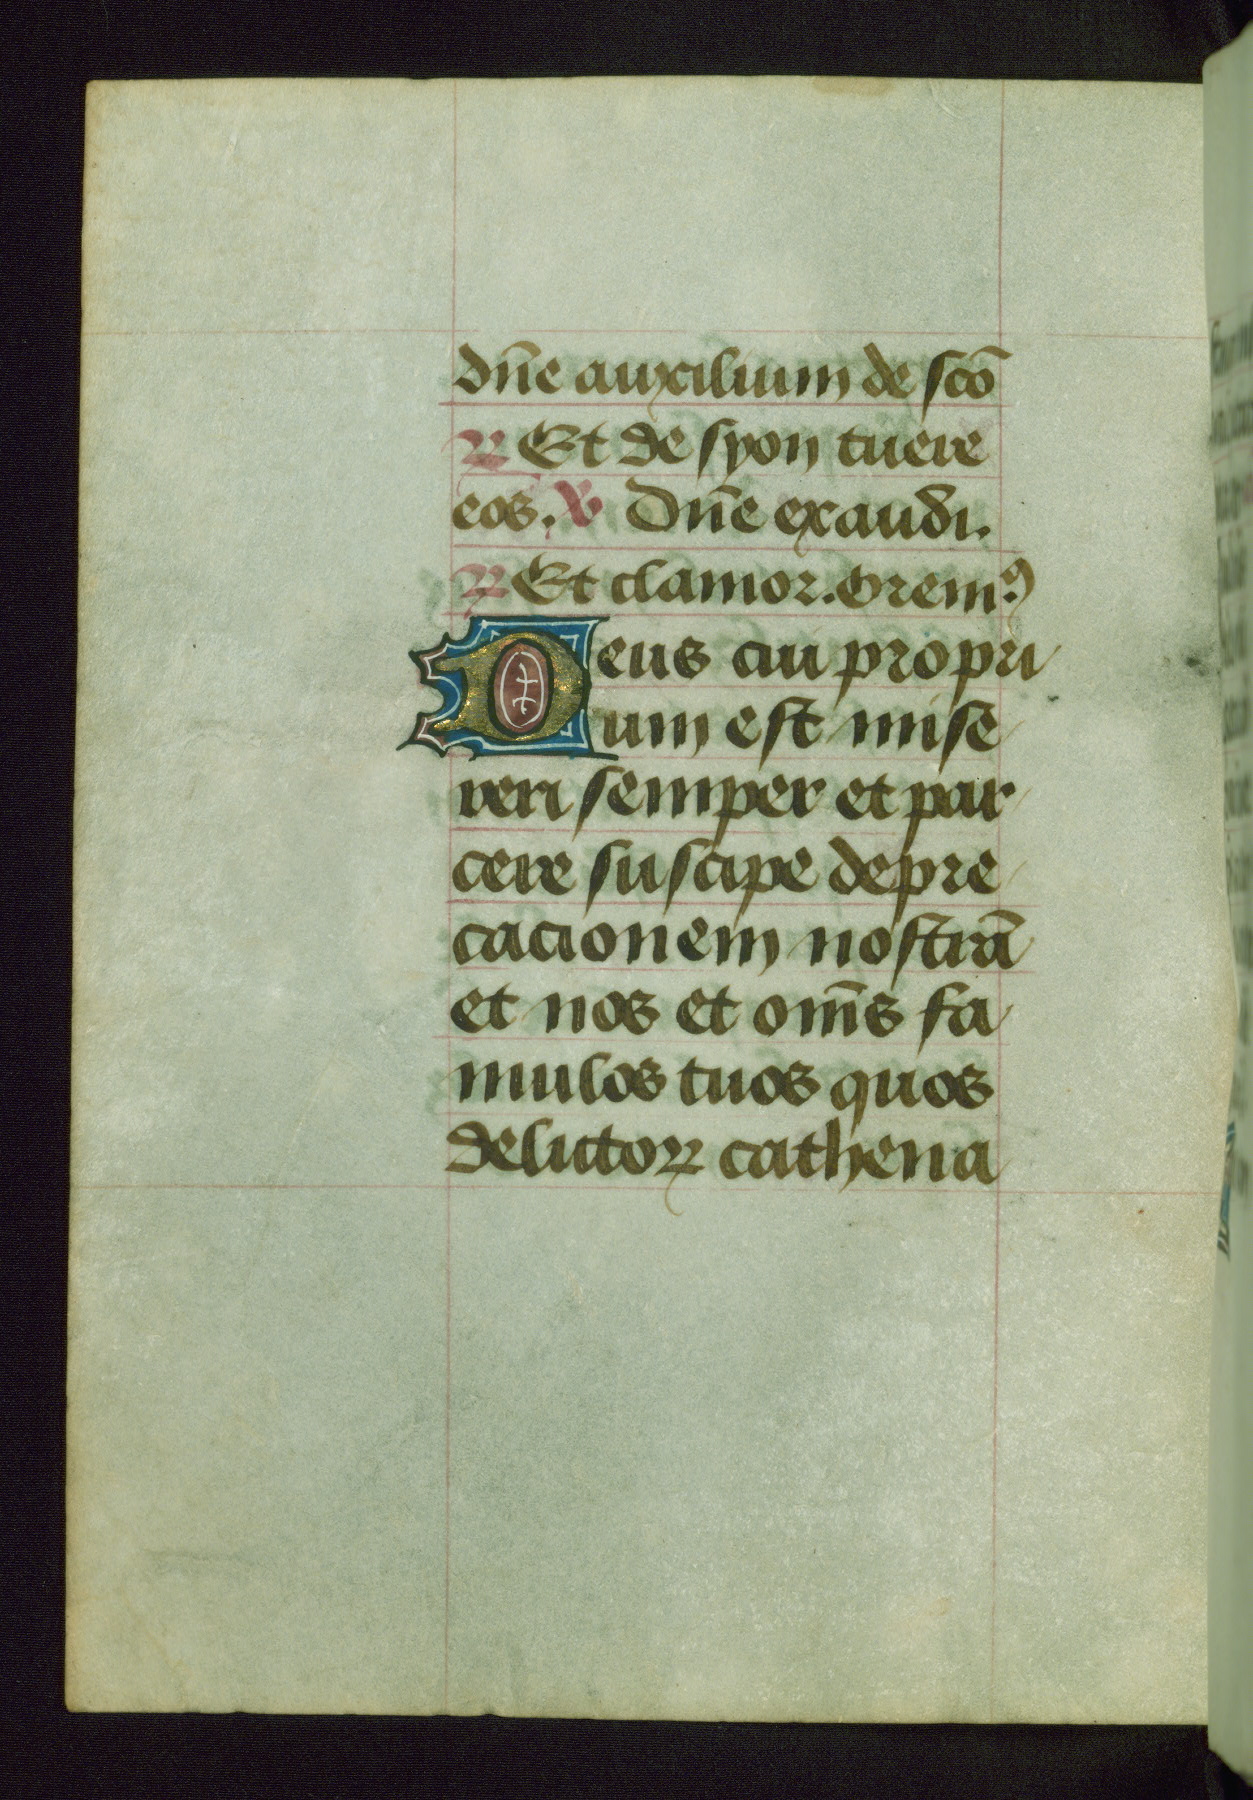 dn̄e auxilium de sc̄o
℟ Et de syon tuere
eos. ℣ Dn̄e exaudi.
℟ Et clamor. Oremꝰ.
Deus cui propri
um est mise
reri semper et par
cere suscipe depre
cacionem nostrā
et nos et om̄s fa
mulos tuos quos
delictoꝝ cathena